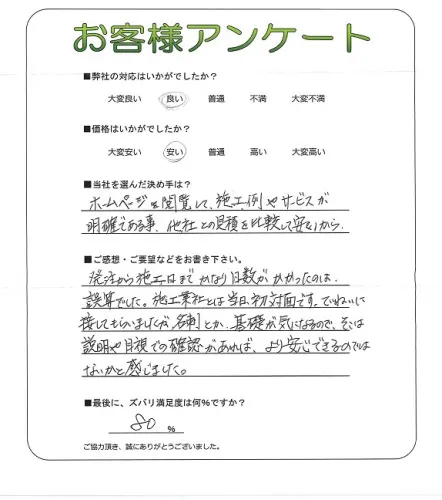 お客様アンケート
■弊社の対応はいかがでしたか?
大変良い 良い 普通 不満 大変不満
■価格はいかがでしたか?
大変安い 安い 普通 高い 大変高い
■当社を選んだ決め手は?
ホームページを閲覧して、施工例やサービスが
明確である事、他社との見積を比較して安いから.
■ご感想・ご要望などをお書き下さい。
発注から施工日までかなり日数がかかったのは.
誤算でした。施工業社とは当日、初対面です。ていねいに
接してもらいましたが、名刺とか、基礎が気になるので、そこは
説明や目視での確認があれば、より安心できるのでは
ないかと感じました。
■最後に、ズバリ満足度は何%ですか?
80 %
ご協力頂き、誠にありがとうございました。